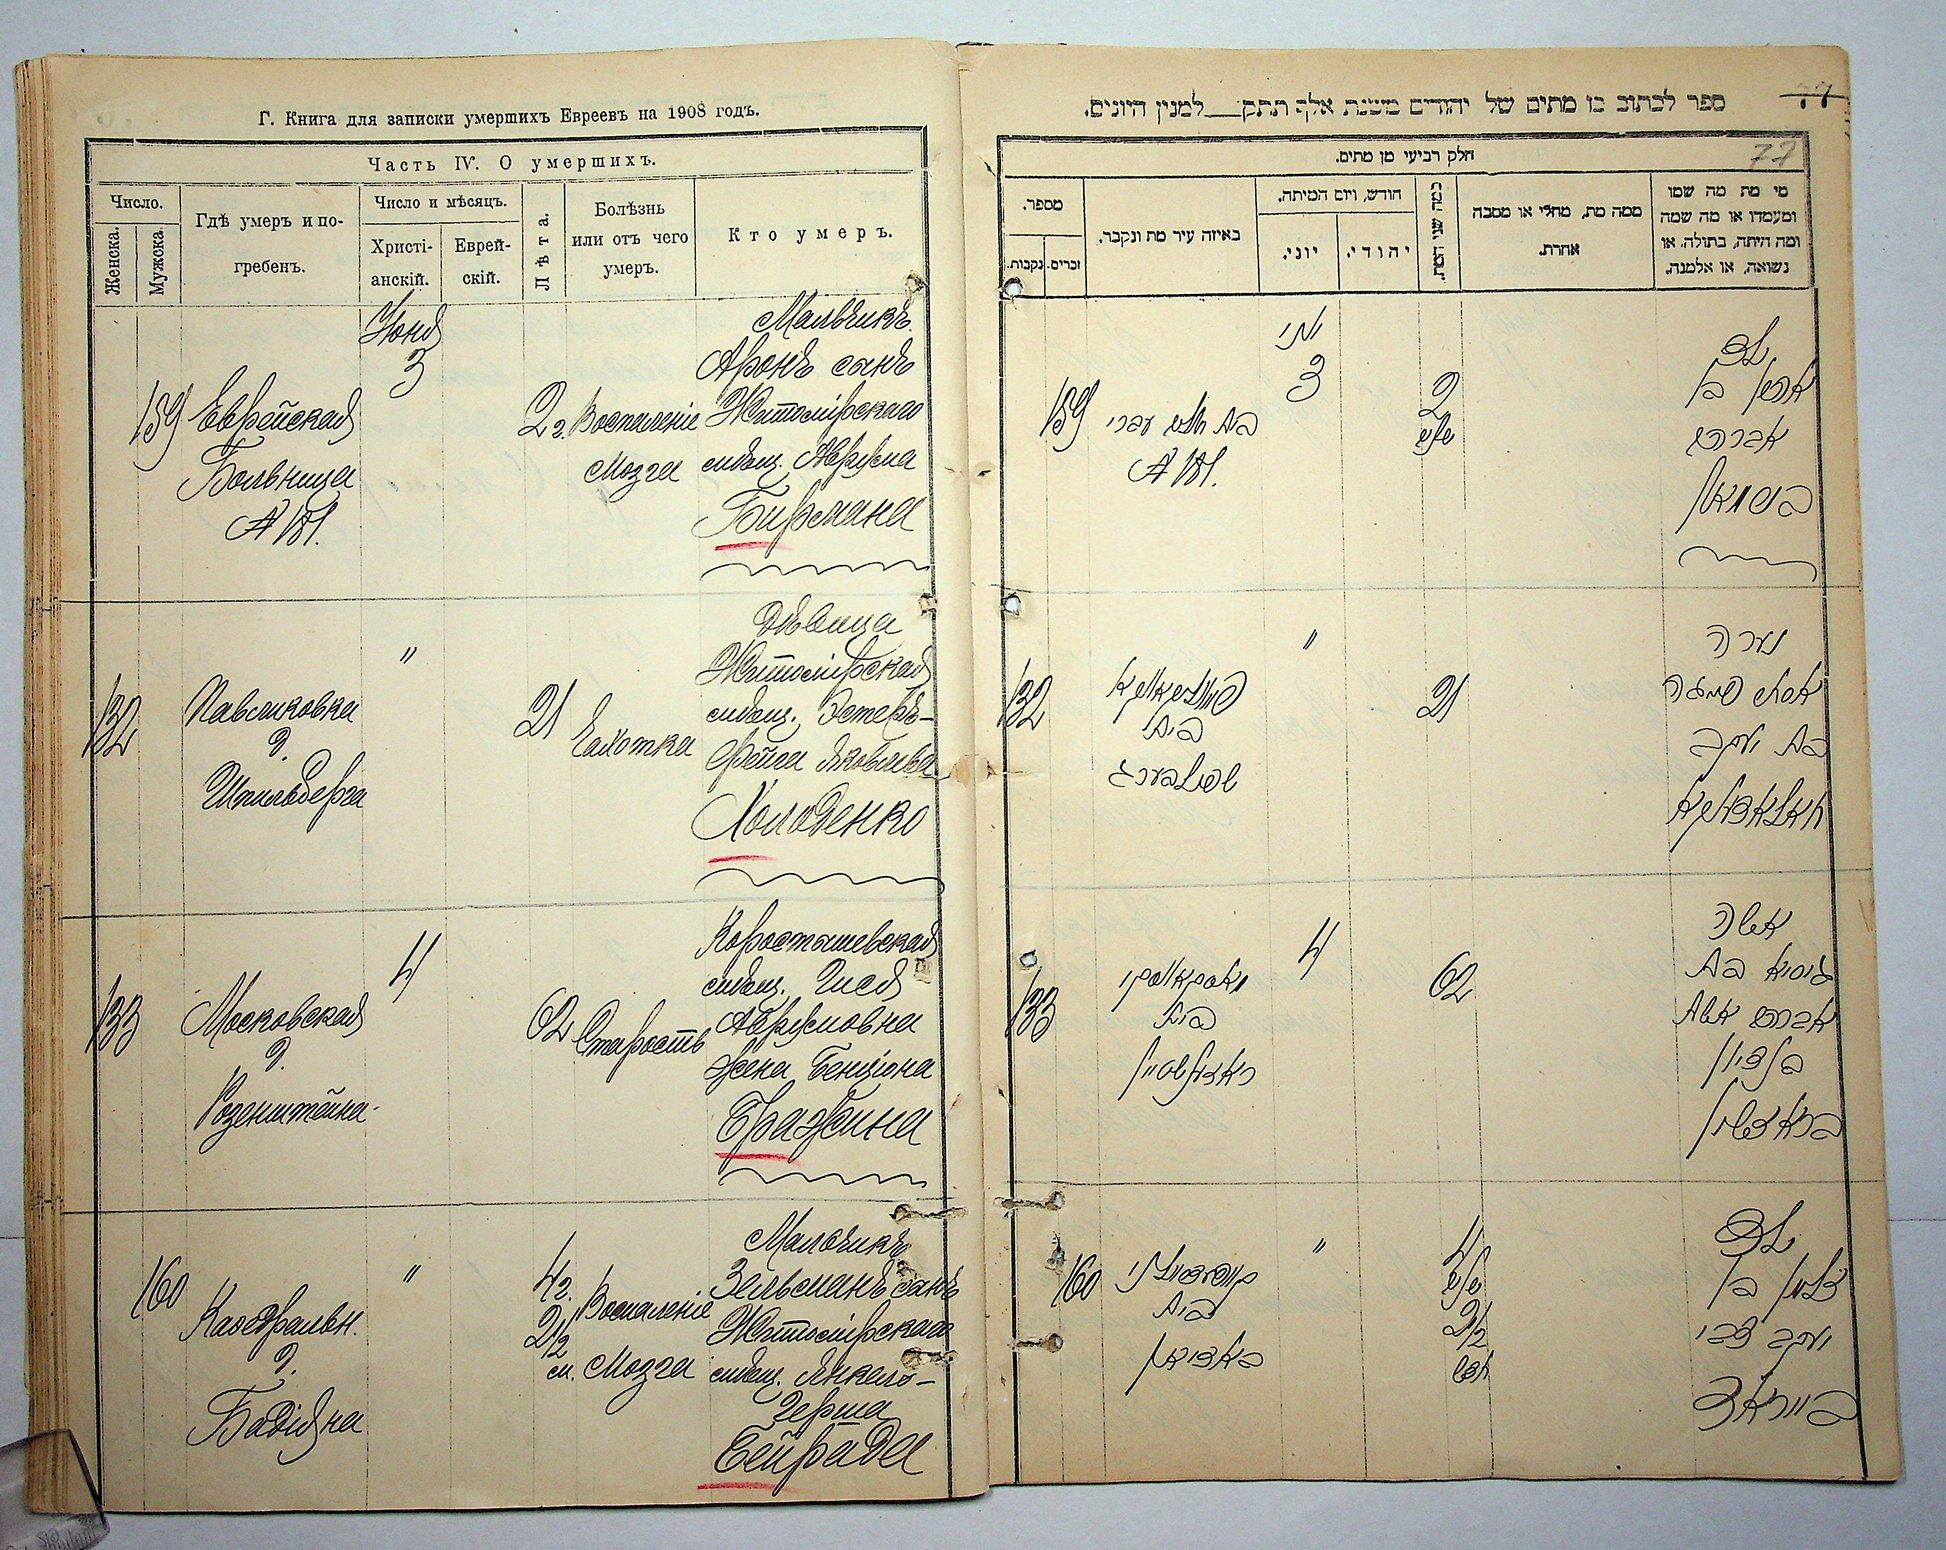 Г. Книга для записки умершихъ Евреевъ на 1908 годъ.
Часть IV. О умершихъ.
Число.
Женска.
Мужеска.
Гдѣ умеръ и по-
гребенъ.
Число и мѣсяцъ.
Христі-
анскій.
Еврей-
скій.
Лѣта.
Болѣзнь
или отъ чего
умеръ.
Кто умеръ.
159
Еврейская
Больница
№ 181.
Июня
3
2 г.
Воспаленіе
мозга
Мальчикъ
Аронъ сынъ
Житомірскаго
мѣщ. Аврума
Бирмана
132
Павликовка
д.
Шпильберга
"
21
Чахотка
Дѣвица
Житомірская
мѣщ. Эстеръ-
Фейга Яковлева
Холоденко
133
Московская
д.
Розенштейна.
4
62
Старость
Коростышевская
мѣщ. Гися
Аврумовна
жена Бенціона
Бражина
160
д.
"
4 г.
2 1/2
м.
Воспаленіе
мозга
Мальчикъ
Зельманъ сынъ
Житомірскаго
мѣщ. Янкель-
Герша
Бейрада
ספר לכתוב בו מתים של יהודים משנת אלף תתק __ למנין היונים.
77
77
חלק רביעי מן מתים.
מספר.
נקבות.
זכרים.
באיזה עיר מת ונקבר.
חודש, ויום המיתה.
יוני.
יהודי.
כמה שני המת.
ממה מת, מחלי או מסבה
אחרת.
מי מת מה שמו
ומעמדו או מה שמה
ומה היתה, בתולה, או
נשואה, או אלמנה.
159
בית חולים עברי
№ 181.
יוני
3
2
שנים
ילד
אהרן בן
אברהם
בירמאן
132
פאוולikאווקא
בית
שפילבערג
"
21
נערה
אסתר פייגה
בת יעקב
חאלאדענקא
133
מאסקאווסקי
בית
ראזענשטיין
4
62
אשה
גיסיא בת
אברהם אשת
בן ציון
בראזשין
160
בית
באדיאן
"
4
שנים
2 1/2
חדש
ילד
זלמן בן
יעקב צבי
בייראד